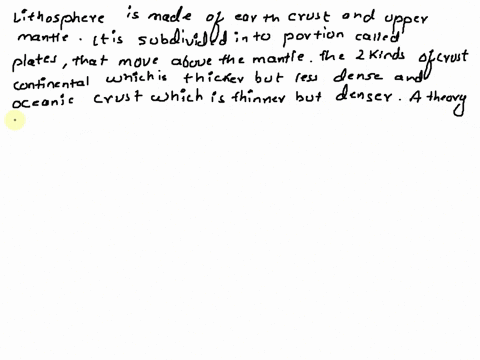 Lithosphere is made of earth crust and upper
mantle. It is subdivided into portion called
plates, that move above the mantle. The 2 kinds of crust
continental which is thicker but less dense and
oceanic crust which is thinner but denser. A theory